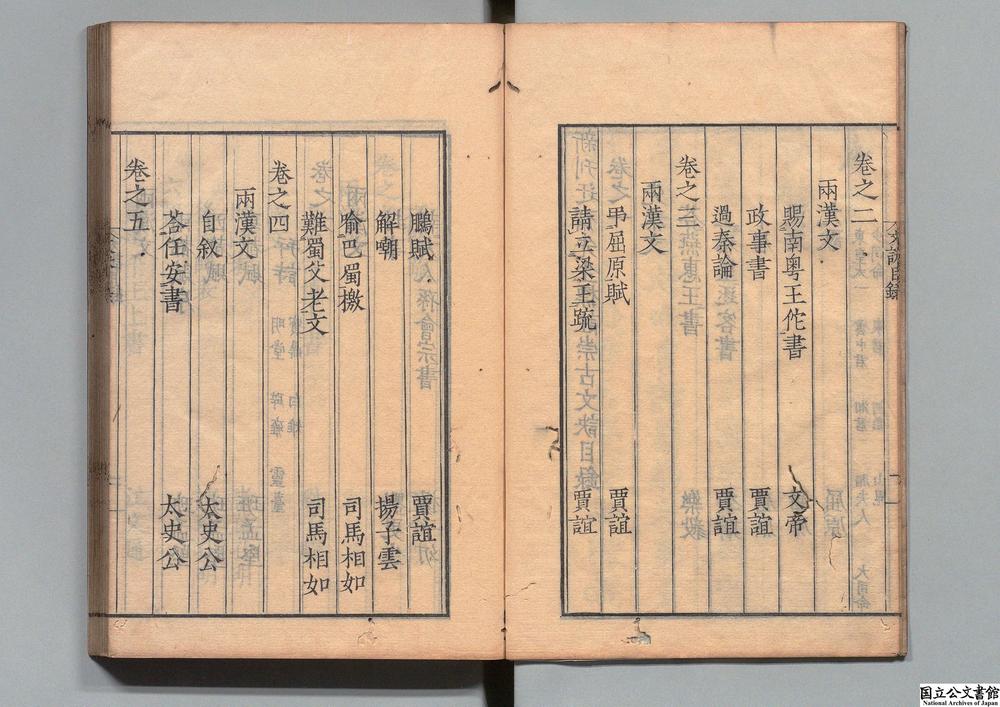 卷之二
兩漢文
賜南粵王佗書 文帝
政事書 賈誼
過秦論 賈誼
卷之三
兩漢文
弔屈原賦 賈誼
請立梁王疏 賈誼
鵬賦 賈誼
解嘲 揚子雲
喻巴蜀檄 司馬相如
難蜀父老文 司馬相如
卷之四
兩漢文
自叙 太史公
荅任安書 太史公
卷之五
国立公文書館
National Archives of Japan